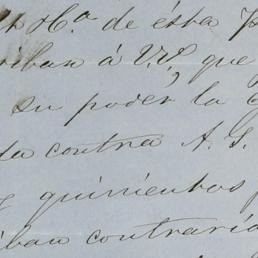 H.ª de ésta
criban á V.V, que
su poder la
da contra A. G.
y quinientos
iban contraria